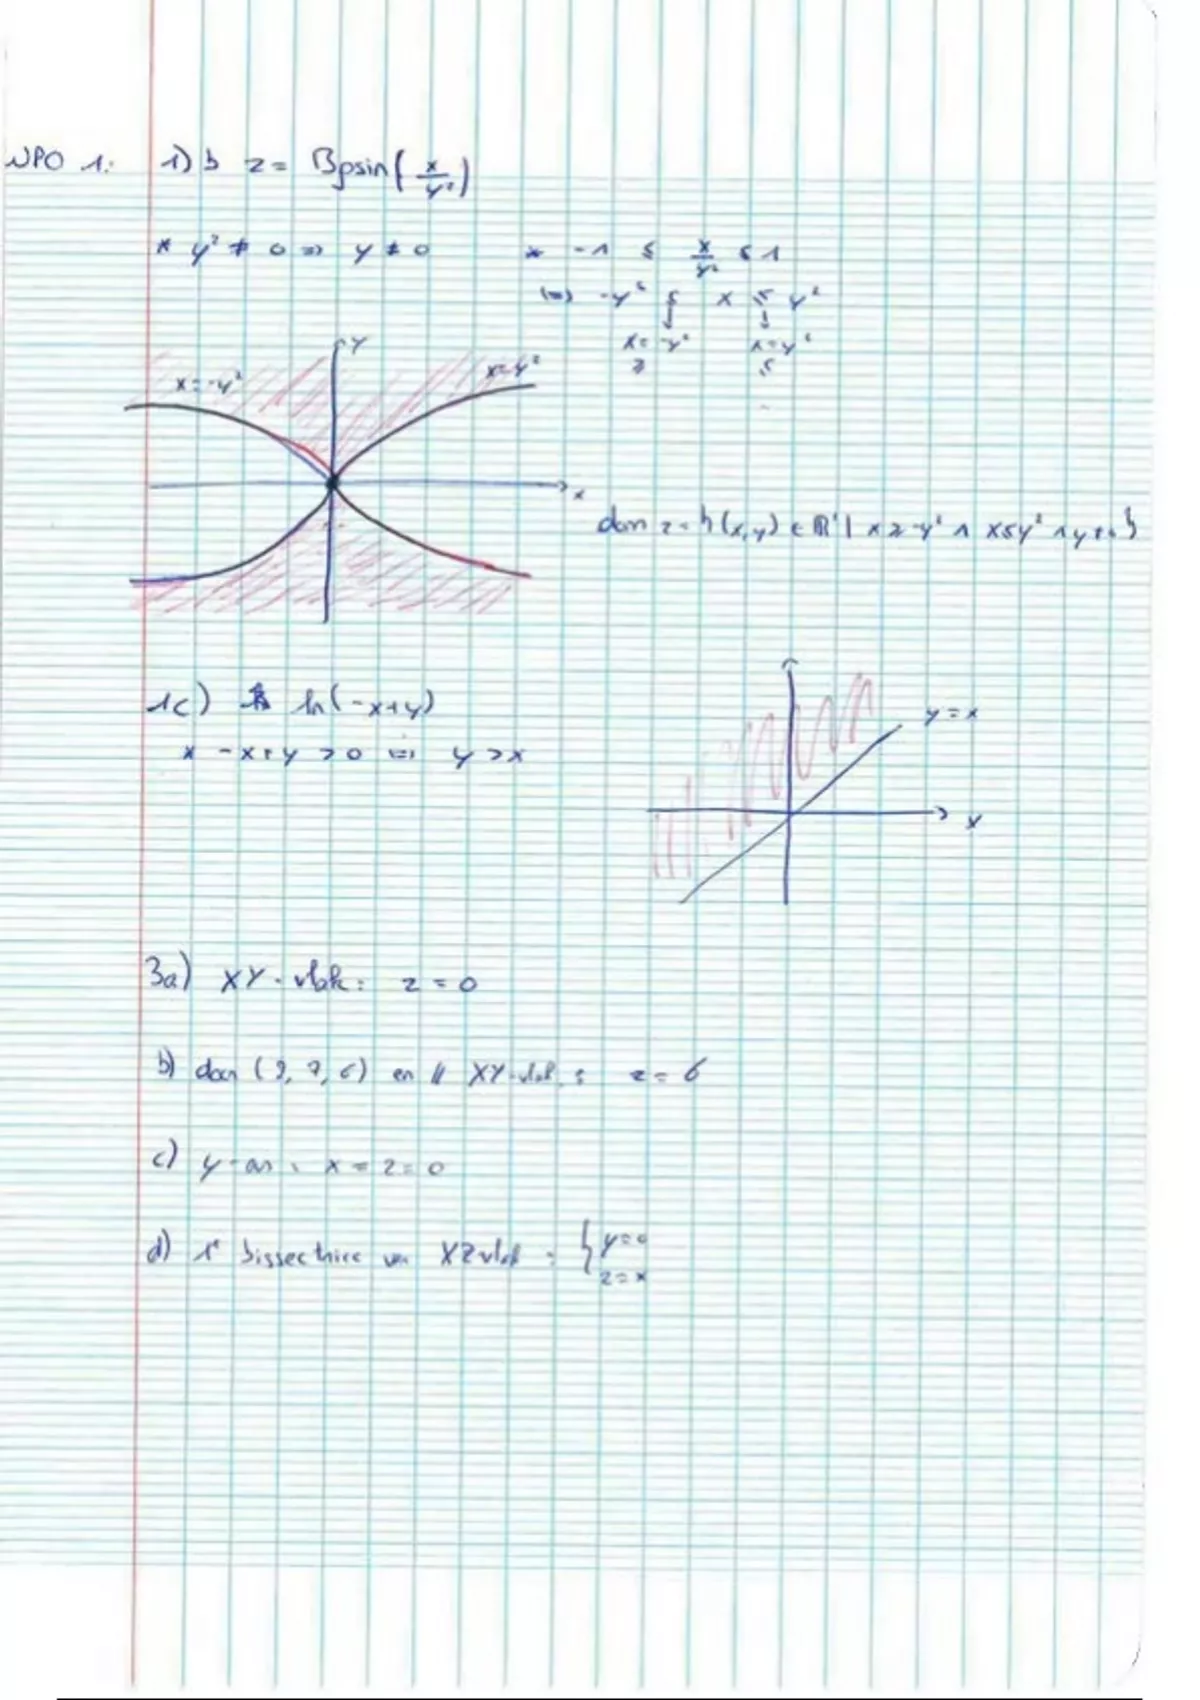 WPO 1: 1) b z = Bgsin( x/y² )
* y² ≠ 0 ⇒ y ≠ 0 * -1 ≤ x/y² ≤ 1
⇔ -y² ≤ x ≤ y²
↓ ↓
x = -y² x = y²
≥ ≤
y
x = -y² x = y²
x
dom z = {(x,y) ∈ ℝ² | x ≥ -y² ∧ x ≤ y² ∧ y ≠ 0}
1c) ln(-x+y)
* -x+y > 0 ⇔ y > x
y = x
x
3a) XY-vlak: z = 0
b) door (9, 7, 6) en // XY-vlak: z = 6
c) y-as: x = z = 0
d) 1e bissectrice van XZ vlak: { y = 0
z = x